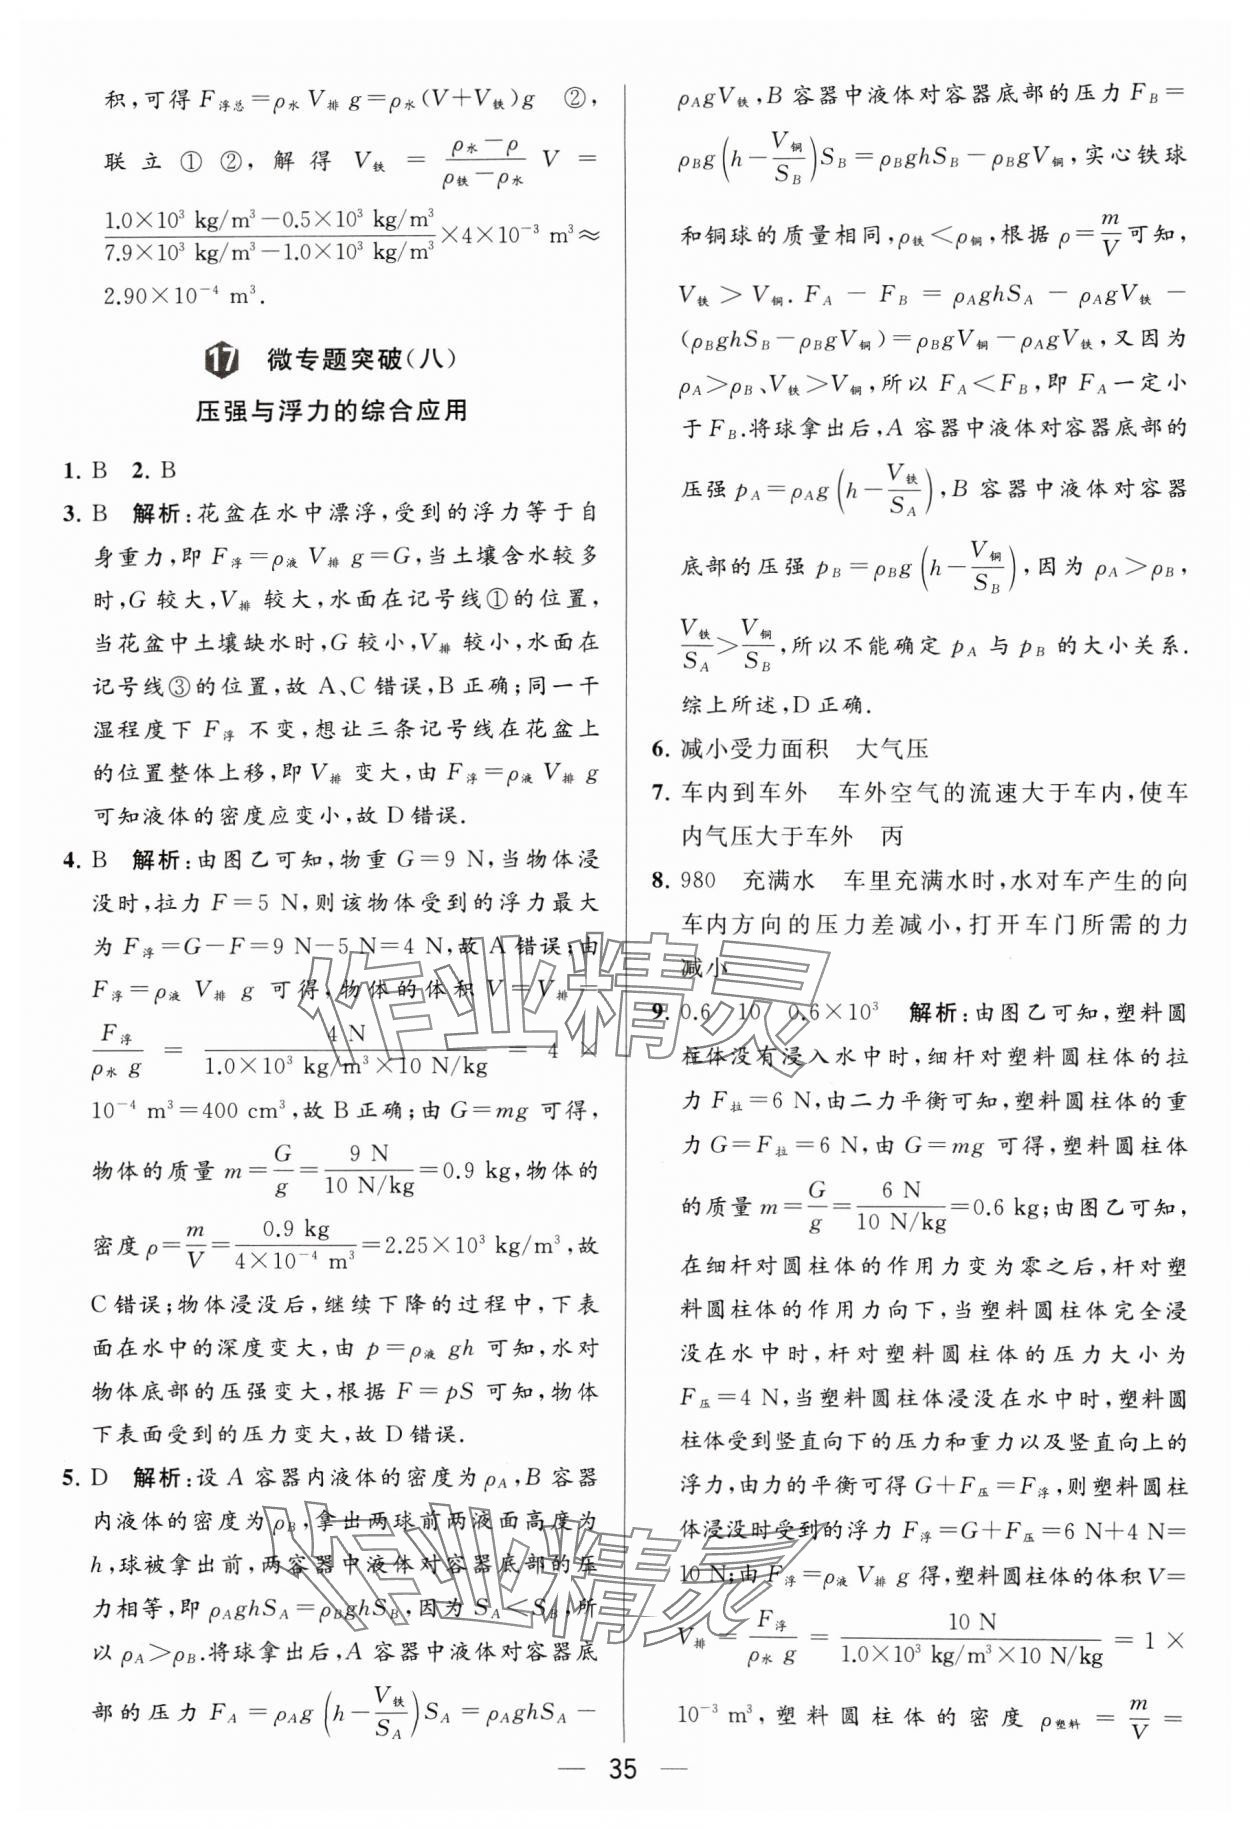 积,可得 F浮总=ρ水 V排 g=ρ水(V+V铁)g ②,
联立①②,解得 V铁 = (ρ水-ρ)/(ρ铁-ρ水) V =
(1.0×10³ kg/m³-0.5×10³ kg/m³)/(7.9×10³ kg/m³-1.0×10³ kg/m³)×4×10⁻³ m³≈
2.90×10⁻⁴ m³.
17 微专题突破(八)
压强与浮力的综合应用
1. B 2. B
3. B 解析:花盆在水中漂浮,受到的浮力等于自
身重力,即 F浮=ρ液 V排 g=G,当土壤含水较多
时,G 较大,V排 较大,水面在记号线①的位置,
当花盆中土壤缺水时,G 较小,V排 较小,水面在
记号线③的位置,故 A、C 错误,B 正确;同一干
湿程度下 F浮 不变,想让三条记号线在花盆上
的位置整体上移,即 V排 变大,由 F浮=ρ液 V排 g
可知液体的密度应变小,故 D 错误.
4. B 解析:由图乙可知,物重 G=9 N,当物体浸
没时,拉力 F=5 N,则该物体受到的浮力最大
为 F浮=G-F=9 N-5 N=4 N,故 A 错误;由
F浮=ρ液 V排 g 可得,物体的体积 V=V排=
F浮/(ρ水 g) = 4 N/(1.0×10³ kg/m³×10 N/kg) = 4 ×
10⁻⁴ m³=400 cm³,故 B 正确;由 G=mg 可得,
物体的质量 m=G/g=9 N/(10 N/kg)=0.9 kg,物体的
密度 ρ=m/V=0.9 kg/(4×10⁻⁴ m³)=2.25×10³ kg/m³,故
C 错误;物体浸没后,继续下降的过程中,下表
面在水中的深度变大,由 p=ρ液 gh 可知,水对
物体底部的压强变大,根据 F=pS 可知,物体
下表面受到的压力变大,故 D 错误.
5. D 解析:设 A 容器内液体的密度为 ρA,B 容器
内液体的密度为 ρB,拿出两球前两液面高度为
h,球被拿出前,两容器中液体对容器底部的压
力相等,即 ρAghSA=ρBghSB,因为 SA<SB,所
以 ρA>ρB.将球拿出后,A 容器中液体对容器底
部的压力 FA=ρAg(h-V铁/SA)SA=ρAghSA-
ρAgV铁,B 容器中液体对容器底部的压力 FB=
ρBg(h-V铜/SB)SB=ρBghSB-ρBgV铜,实心铁球
和铜球的质量相同,ρ铁<ρ铜,根据 ρ=m/V可知,
V铁>V铜.FA-FB=ρAghSA-ρAgV铁-
(ρBghSB-ρBgV铜)=ρBgV铜-ρAgV铁,又因为
ρA>ρB、V铁>V铜,所以 FA<FB,即 FA一定小
于 FB.将球拿出后,A 容器中液体对容器底部的
压强 pA=ρAg(h-V铁/SA),B 容器中液体对容器
底部的压强 pB=ρBg(h-V铜/SB),因为 ρA>ρB,
V铁/SA>V铜/SB,所以不能确定 pA 与 pB 的大小关系.
综上所述,D 正确.
6. 减小受力面积 大气压
7. 车内到车外 车外空气的流速大于车内,使车
内气压大于车外 丙
8. 980 充满水 车里充满水时,水对车产生的向
车内方向的压力差减小,打开车门所需的力
减小
9. 0.6 10 0.6×10³ 解析:由图乙可知,塑料圆
柱体没有浸入水中时,细杆对塑料圆柱体的拉
力 F拉=6 N,由二力平衡可知,塑料圆柱体的重
力 G=F拉=6 N,由 G=mg 可得,塑料圆柱体
的质量 m=G/g=6 N/(10 N/kg)=0.6 kg;由图乙可知,
在细杆对圆柱体的作用力变为零之后,杆对塑
料圆柱体的作用力向下,当塑料圆柱体完全浸
没在水中时,杆对塑料圆柱体的压力大小为
F压=4 N,当塑料圆柱体浸没在水中时,塑料圆
柱体受到竖直向下的压力和重力以及竖直向上的
浮力,由力的平衡可得 G+F压=F浮,则塑料圆柱
体浸没时受到的浮力 F浮=G+F压=6 N+4 N=
10 N;由 F浮=ρ液 V排 g 得,塑料圆柱体的体积 V=
V排 = F浮/(ρ水 g) = 10 N/(1.0×10³ kg/m³×10 N/kg) = 1 ×
10⁻³ m³,塑料圆柱体的密度 ρ塑料 = m/V =
35
作业精灵
作业精灵